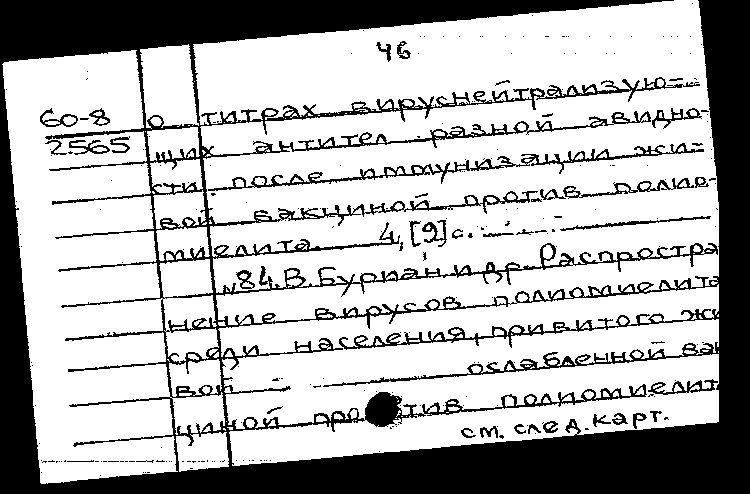 46
60-8 о титрах вируснейтрализую-
2565 щих антител разной авидно-
сти после иммунизации жи-
вой вакциной против полио-
миелита. 4,[9]с.
№84. В. Буриан и др. Распростра
нение вирусов полиомиелита
среди населения, привитого жи
вой ослабленной вак
циной против полиомиелит
см. след. карт.